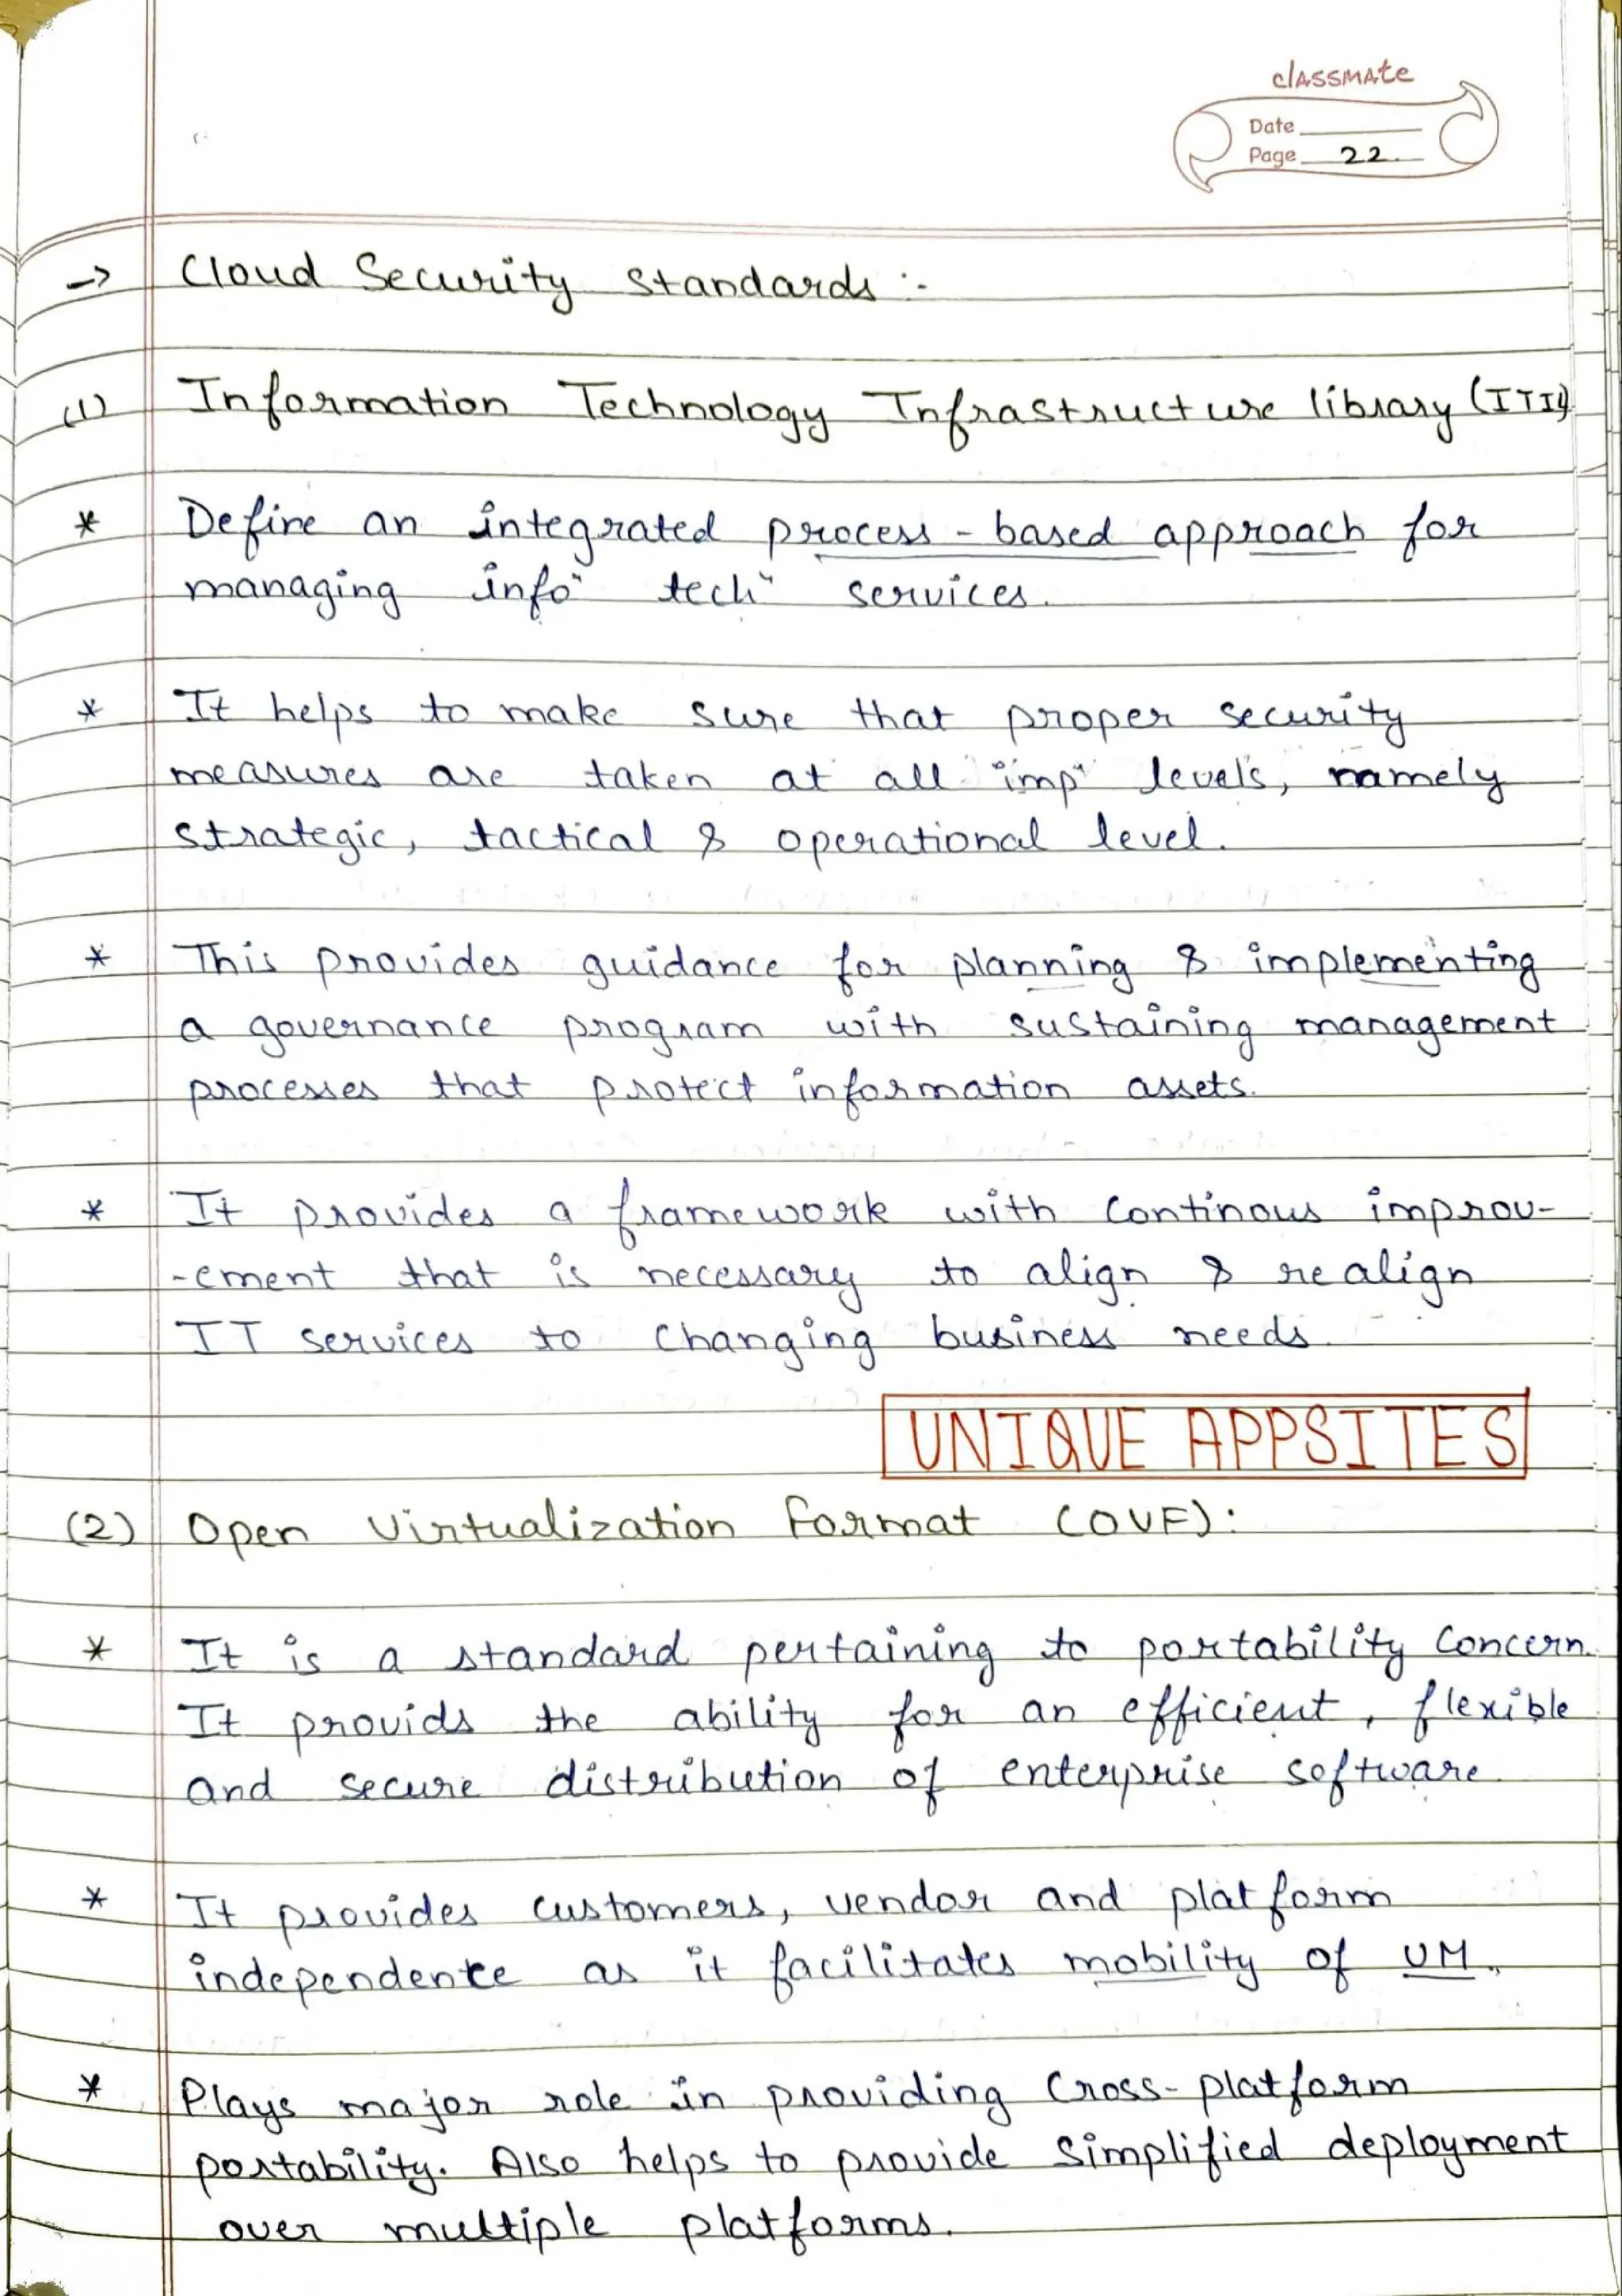 classmate
Date
Page 22.
→ Cloud Security Standards :-
(1) Information Technology Infrastructure library (ITIL)
* Define an integrated process-based approach for
managing info" tech" services.
* It helps to make sure that proper security
measures are taken at all imp" levels, namely
strategic, tactical & operational level.
* This provides guidance for planning & implementing
a governance program with sustaining management
processes that protect information assets.
* It provides a framework with continous improv-
-ement that is necessary to align & realign
IT services to changing business needs.
UNIQUE APPSITES
(2) Open Virtualization Format (OVF):
* It is a standard pertaining to portability concern.
It provids the ability for an efficient, flexible
and secure distribution of enterprise software.
* It provides customers, vendor and platform
independence as it facilitates mobility of VM.
* Plays major role in providing cross-platform
portability. Also helps to provide simplified deployment
over multiple platforms.